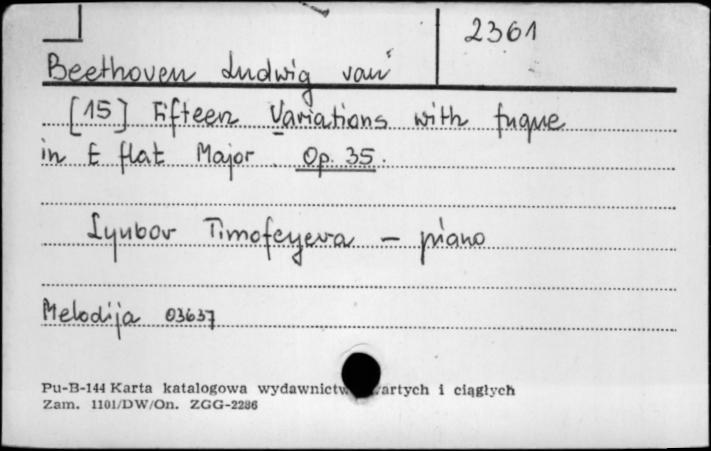 2361
Beethoven Ludwig van
[15] Fifteen Variations with fugue
in E flat Major. Op. 35.
Lyubov Timofeyeva - piano
Melodija 03637
Pu-B-144 Karta katalogowa wydawnictw i ciągłych
Zam. 1101/DW/On. ZGG-2286